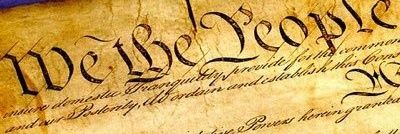 We the People
insure domestic Tranquility, provide for the common
and our Posterity, do ordain and establish this Cons
Powers herein grante